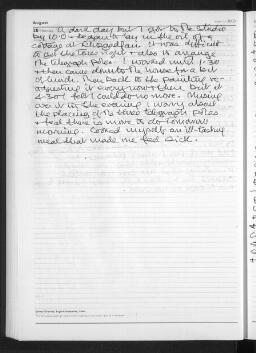 August
A dark day but I got to the studio
by 10.0 & began to lay in the oil of a
cottage at It was difficult
to get the tones right & also to arrange
the telegraph poles. I worked until 1.30
& then came down to the house for a bit
of lunch. Then back to the painting re-
adjusting it every now & then but at
4.30 I felt I could do no more. Musing
over it in the evening I worry about
the placing of the three telegraph poles
& feel there is more to do tomorrow
morning. Cooked myself an ill-tasting
meal that made me feel sick.